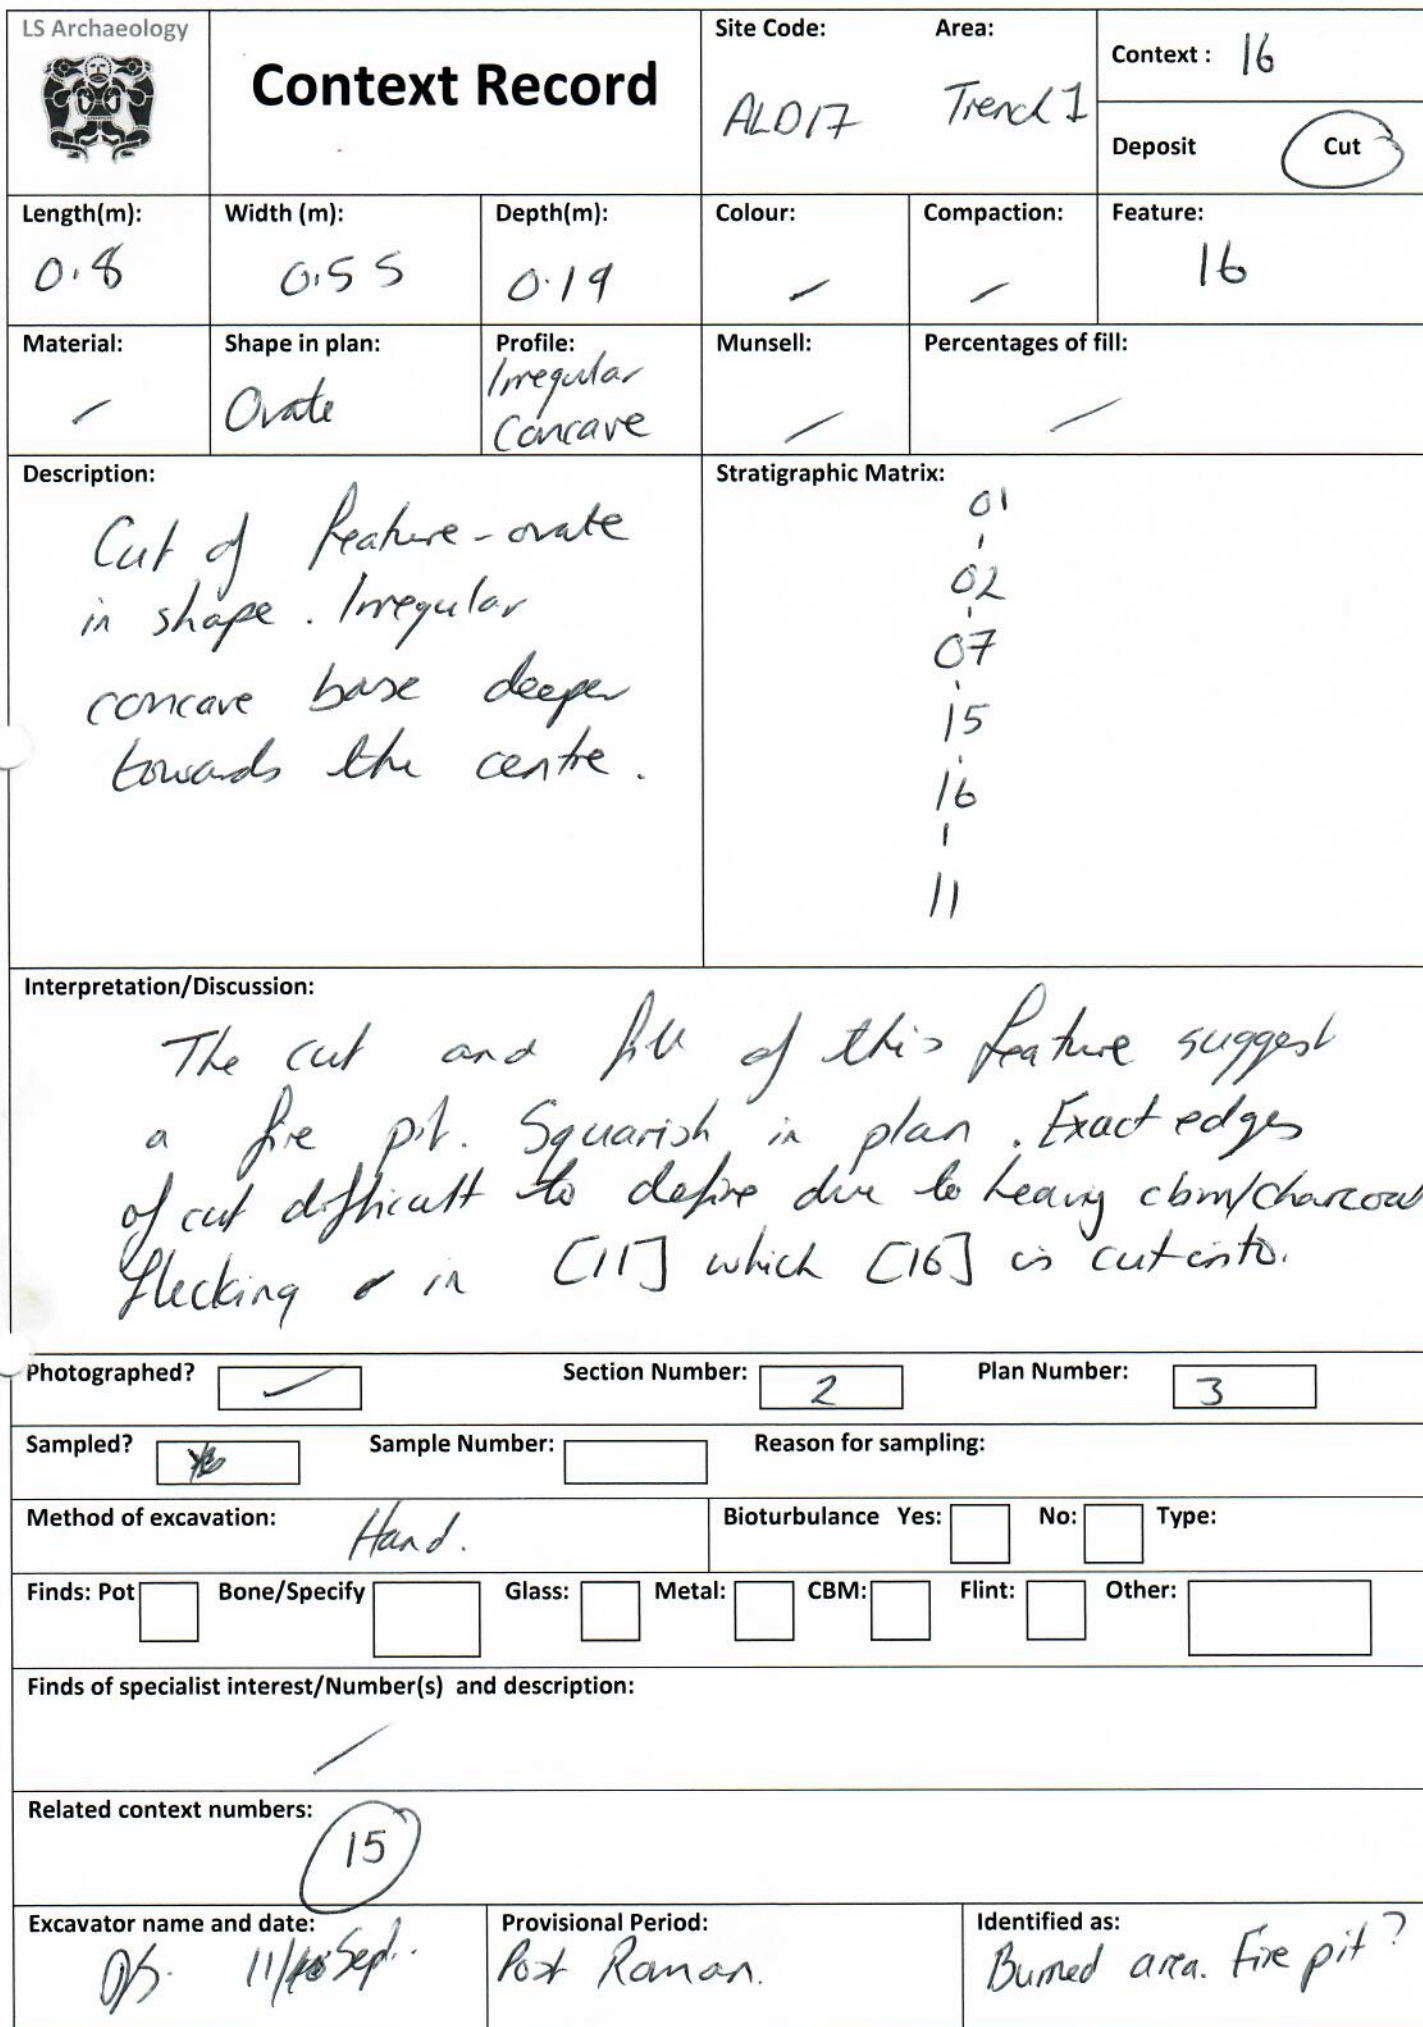 LS Archaeology
Context Record
Site Code: Area:
ALD17 Trench 1
Context : 16
Deposit Cut
Length(m): Width (m): Depth(m): Colour: Compaction: Feature:
0.8 0.55 0.19 / / 16
Material: Shape in plan: Profile: Munsell: Percentages of fill:
/ Ovate Irregular / /
Concave
Description:
Cut of feature - ovate
in shape. Irregular
concave base deeper
towards the centre.
Stratigraphic Matrix:
01
02
07
15
16
11
Interpretation/Discussion:
The cut and fill of this feature suggest
a fire pit. Squarish in plan. Exact edges
of cut difficult to define due to heavy cbm/charcoal
flecking in [11] which [16] is cut into.
Photographed? ✓ Section Number: 2 Plan Number: 3
Sampled? Sample Number: Reason for sampling:
Method of excavation: Hand. Bioturbulance Yes: No: Type:
Finds: Pot Bone/Specify Glass: Metal: CBM: Flint: Other:
Finds of specialist interest/Number(s) and description:
/
Related context numbers:
15
Excavator name and date: Provisional Period: Identified as:
11/ Sept. Post Roman. Burned area. Fire pit?